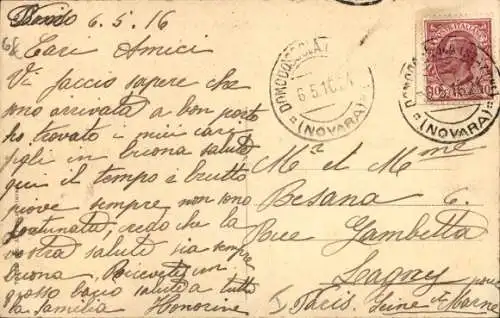 6.5.16
Cari Amici
Vi faccio sapere che
sono arrivata a bon porto
ho trovato i miei cari
figli in buona salute
qui il tempo è brutto
piove sempre, non sono
fortunata, credo che la
vostra salute sia sempre
buona. Ricevete un
grosso bacio saluto a tutta
la familia Honorine
DOMODOSSOLA
6.5.16
(NOVARA)
(NOVARA)
Mr et Mme
Besana C.
Rue Gambetta
Lagny
Paris. Seine et Marne